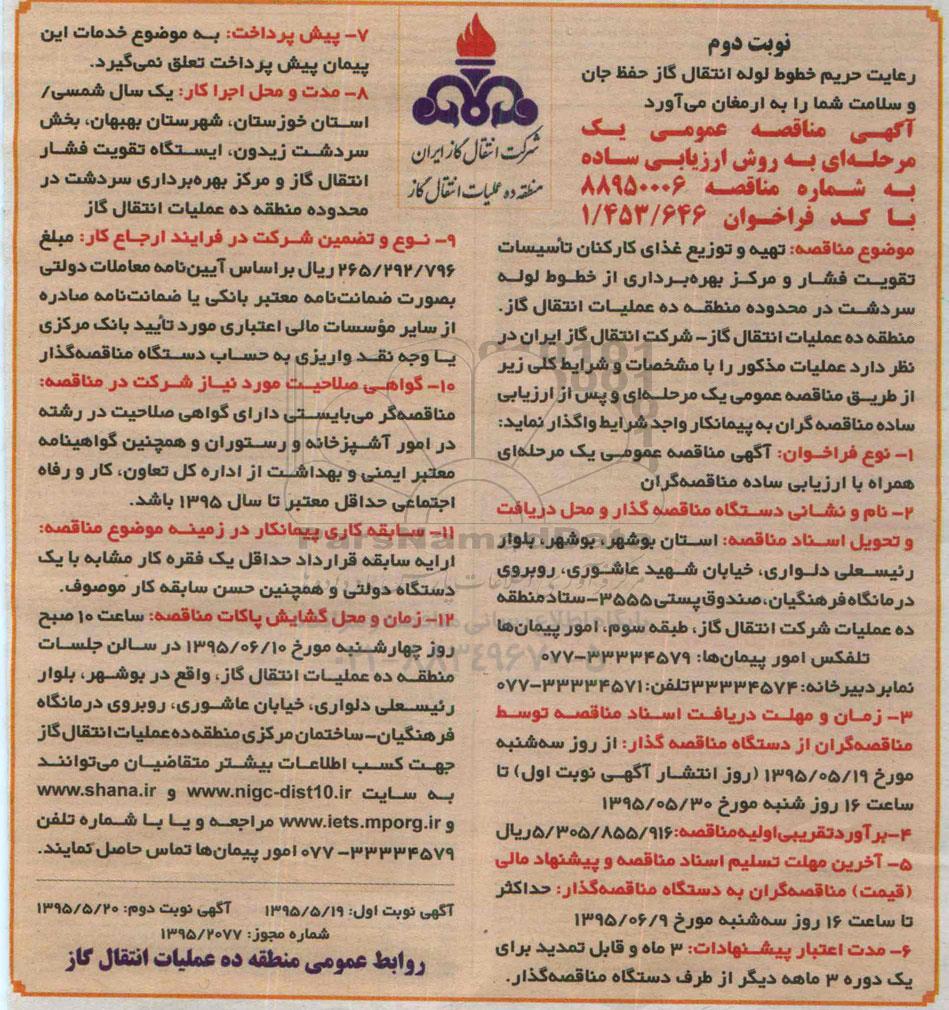 نوبت دوم
رعایت حریم خطوط لوله انتقال گاز حفظ جان
و سلامت شما را به ارمغان می‌آورد
آگهی مناقصه عمومی یک
مرحله‌ای به روش ارزیابی ساده
به شماره مناقصه ۸۸۹۵۰۰۰۶
با کد فراخوان ۱/۴۵۳/۶۴۶
شرکت انتقال گاز ایران
منطقه ده عملیات انتقال گاز
موضوع مناقصه: تهیه و توزیع غذای کارکنان تأسیسات
تقویت فشار و مرکز بهره‌برداری از خطوط لوله
سردشت در محدوده منطقه ده عملیات انتقال گاز.
منطقه ده عملیات انتقال گاز- شرکت انتقال گاز ایران در
نظر دارد عملیات مذکور را با مشخصات و شرایط کلی زیر
از طریق مناقصه عمومی یک مرحله‌ای و پس از ارزیابی
ساده مناقصه گران به پیمانکار واجد شرایط واگذار نماید:
۱- نوع فراخوان: آگهی مناقصه عمومی یک مرحله‌ای
همراه با ارزیابی ساده مناقصه‌گران
۲- نام و نشانی دستگاه مناقصه گذار و محل دریافت
و تحویل اسناد مناقصه: استان بوشهر، بوشهر، بلوار
رئیسعلی دلواری، خیابان شهید عاشوری، روبروی
درمانگاه فرهنگیان، صندوق پستی ۳۵۵۵- ستاد منطقه
ده عملیات شرکت انتقال گاز، طبقه سوم، امور پیمان‌ها
تلفکس امور پیمان‌ها: ۳۳۳۳۴۵۷۹-۰۷۷
نمابر دبیرخانه: ۳۳۳۳۴۵۷۴ تلفن: ۳۳۳۳۴۵۷۱-۰۷۷
۳- زمان و مهلت دریافت اسناد مناقصه توسط
مناقصه‌گران از دستگاه مناقصه گذار: از روز سه‌شنبه
مورخ ۱۳۹۵/۰۵/۱۹ (روز انتشار آگهی نوبت اول) تا
ساعت ۱۶ روز شنبه مورخ ۱۳۹۵/۰۵/۳۰
۴- برآورد تقریبی اولیه مناقصه: ۵/۳۰۵/۸۵۵/۹۱۶ ریال
۵- آخرین مهلت تسلیم اسناد مناقصه و پیشنهاد مالی
(قیمت) مناقصه‌گران به دستگاه مناقصه‌گذار: حداکثر
تا ساعت ۱۶ روز سه‌شنبه مورخ ۱۳۹۵/۰۶/۹
۶- مدت اعتبار پیشنهادات: ۳ ماه و قابل تمدید برای
یک دوره ۳ ماهه دیگر از طرف دستگاه مناقصه‌گذار.
۷- پیش پرداخت: به موضوع خدمات این
پیمان پیش پرداخت تعلق نمی‌گیرد.
۸- مدت و محل اجرا کار: یک سال شمسی/
استان خوزستان، شهرستان بهبهان، بخش
سردشت زیدون، ایستگاه تقویت فشار
انتقال گاز و مرکز بهره‌برداری سردشت در
محدوده منطقه ده عملیات انتقال گاز
۹- نوع و تضمین شرکت در فرایند ارجاع کار: مبلغ
۲۶۵/۲۹۲/۷۹۶ ریال براساس آیین‌نامه معاملات دولتی
بصورت ضمانت‌نامه معتبر بانکی یا ضمانت‌نامه صادره
از سایر مؤسسات مالی اعتباری مورد تأیید بانک مرکزی
یا وجه نقد واریزی به حساب دستگاه مناقصه‌گذار
۱۰- گواهی صلاحیت مورد نیاز شرکت در مناقصه:
مناقصه‌گر می‌بایستی دارای گواهی صلاحیت در رشته
در امور آشپزخانه و رستوران و همچنین گواهینامه
معتبر ایمنی و بهداشت از اداره کل تعاون، کار و رفاه
اجتماعی حداقل معتبر تا سال ۱۳۹۵ باشد.
۱۱- سابقه کاری پیمانکار در زمینه موضوع مناقصه:
ارایه سابقه قرارداد حداقل یک فقره کار مشابه با یک
دستگاه دولتی و همچنین حسن سابقه کار موصوف.
۱۲- زمان و محل گشایش پاکات مناقصه: ساعت ۱۰ صبح
روز چهارشنبه مورخ ۱۳۹۵/۰۶/۱۰ در سالن جلسات
منطقه ده عملیات انتقال گاز، واقع در بوشهر، بلوار
رئیسعلی دلواری، خیابان عاشوری، روبروی درمانگاه
فرهنگیان- ساختمان مرکزی منطقه ده عملیات انتقال گاز
جهت کسب اطلاعات بیشتر متقاضیان می‌توانند
به سایت www.nigc-dist10.ir و www.shana.ir
و www.iets.mporg.ir مراجعه و یا با شماره تلفن
۳۳۳۳۴۵۷۹-۰۷۷ امور پیمان‌ها تماس حاصل نمایند.
آگهی نوبت اول: ۱۳۹۵/۵/۱۹ آگهی نوبت دوم: ۱۳۹۵/۵/۲۰
شماره مجوز: ۱۳۹۵/۲۰۷۷
روابط عمومی منطقه ده عملیات انتقال گاز